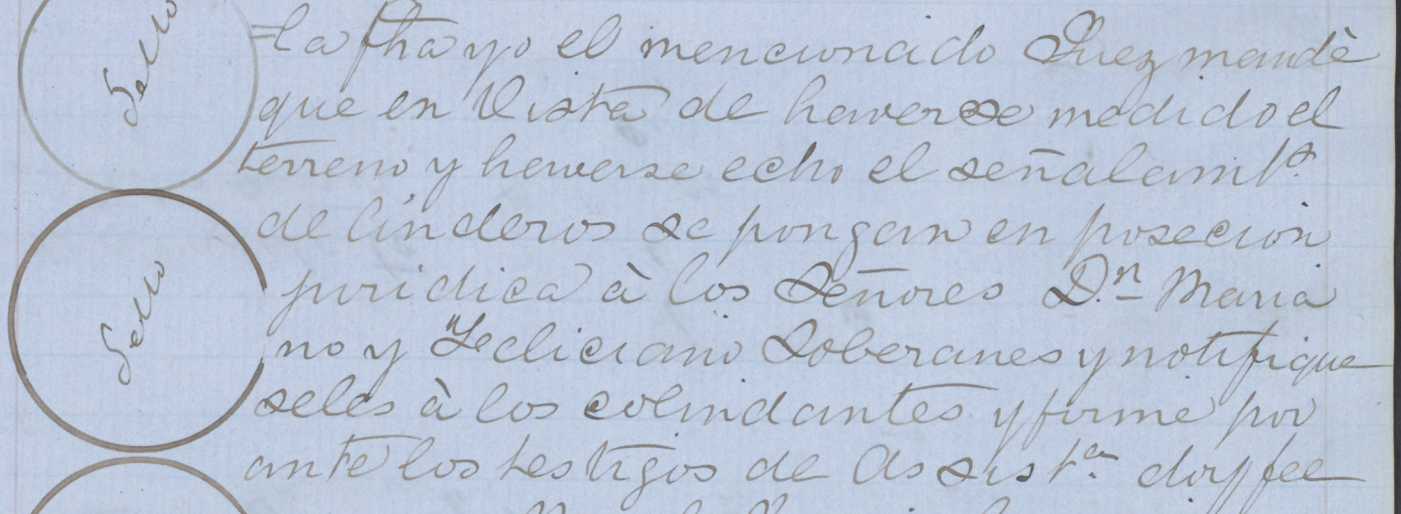 Sello
=la fha yo el mencionado Juez mandè
que en Vista de haverse medido el
terreno y heverse echo el señalamto.
de linderos se pongan en posecion
Sello
juridica à los Señores Dn. Maria
no y Feliciano Soberanes y notifique
seles à los colindantes y firme por
ante los testigos de Assista. doy fee